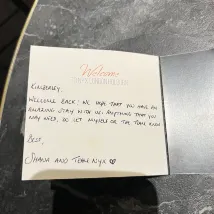 Welcome
Kimberley,
Welcome back! We hope that you have an
amazing stay with us. Anything that you
may need, do let myself or the team know
Best,
Shana and Team NYX